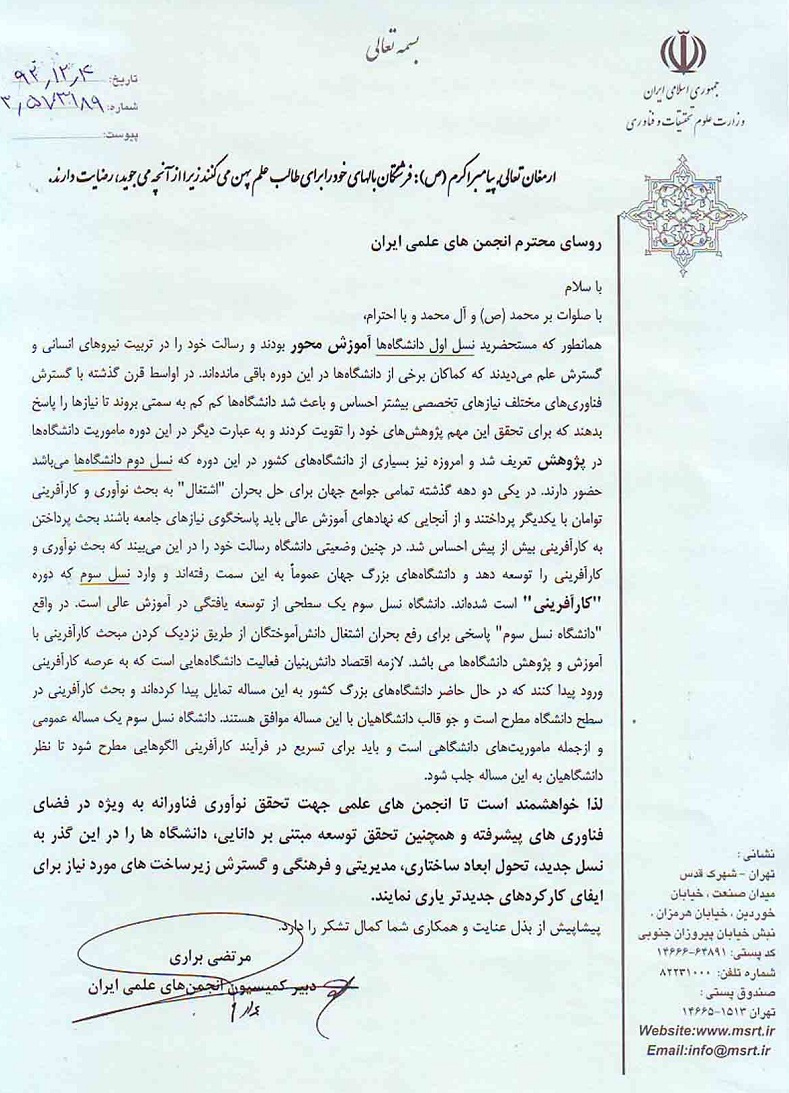 بسمه تعالی
جمهوری اسلامی ایران
وزارت علوم تحقیقات و فناوری
تاریخ: ۹۳,۱۲,۴
شماره: ۳,۵۷۳۱۸۹
پیوست:
ارمغان تعالی، پیامبر اکرم (ص): فرشتگان بالهای خود را برای طالب علم پهن می کنند زیرا از آنچه می جوید، رضایت دارند.
روسای محترم انجمن های علمی ایران
با سلام
با صلوات بر محمد (ص) و آل محمد و با احترام،
همانطور که مستحضرید نسل اول دانشگاه‌ها آموزش محور بودند و رسالت خود را در تربیت نیروهای انسانی و
گسترش علم می‌دیدند که کماکان برخی از دانشگاه‌ها در این دوره باقی مانده‌اند. در اواسط قرن گذشته با گسترش
فناوری‌های مختلف نیازهای تخصصی بیشتر احساس و باعث شد دانشگاه‌ها کم کم به سمتی بروند تا نیازها را پاسخ
بدهند که برای تحقق این مهم پژوهش‌های خود را تقویت کردند و به عبارت دیگر در این دوره ماموریت دانشگاه‌ها
در پژوهش تعریف شد و امروزه نیز بسیاری از دانشگاه‌های کشور در این دوره که نسل دوم دانشگاه‌ها می‌باشد
حضور دارند. در یکی دو دهه گذشته تمامی جوامع جهان برای حل بحران "اشتغال" به بحث نوآوری و کارآفرینی
توامان با یکدیگر پرداختند و از آنجایی که نهادهای آموزش عالی باید پاسخگوی نیازهای جامعه باشند بحث پرداختن
به کارآفرینی بیش از پیش احساس شد. در چنین وضعیتی دانشگاه رسالت خود را در این می‌بیند که بحث نوآوری و
کارآفرینی را توسعه دهد و دانشگاه‌های بزرگ جهان عموماً به این سمت رفته‌اند و وارد نسل سوم که دوره
"کارآفرینی" است شده‌اند. دانشگاه نسل سوم یک سطحی از توسعه یافتگی در آموزش عالی است. در واقع
"دانشگاه نسل سوم" پاسخی برای رفع بحران اشتغال دانش‌آموختگان از طریق نزدیک کردن مبحث کارآفرینی با
آموزش و پژوهش دانشگاه‌ها می باشد. لازمه اقتصاد دانش‌بنیان فعالیت دانشگاه‌هایی است که به عرصه کارآفرینی
ورود پیدا کنند که در حال حاضر دانشگاه‌های بزرگ کشور به این مساله تمایل پیدا کرده‌اند و بحث کارآفرینی در
سطح دانشگاه مطرح است و جو قالب دانشگاهیان با این مساله موافق هستند. دانشگاه نسل سوم یک مساله عمومی
و ازجمله ماموریت‌های دانشگاهی است و باید برای تسریع در فرآیند کارآفرینی الگوهایی مطرح شود تا نظر
دانشگاهیان به این مساله جلب شود.
لذا خواهشمند است تا انجمن های علمی جهت تحقق نوآوری فناورانه به ویژه در فضای
فناوری های پیشرفته و همچنین تحقق توسعه مبتنی بر دانایی، دانشگاه ها را در این گذر به
نسل جدید، تحول ابعاد ساختاری، مدیریتی و فرهنگی و گسترش زیرساخت های مورد نیاز برای
ایفای کارکردهای جدیدتر یاری نمایند.
پیشاپیش از بذل عنایت و همکاری شما کمال تشکر را دارد.
مرتضی براری
دبیر کمیسیون انجمن‌های علمی ایران
نشانی :
تهران - شهرک قدس
میدان صنعت ، خیابان
خوردین ، خیابان هرمزان ،
نبش خیابان پیروزان جنوبی
کد پستی: ۶۴۸۹۱-۱۴۶۶۶
شماره تلفن: ۸۲۲۳۱۰۰۰
صندوق پستی :
تهران ۱۵۱۳-۱۴۶۶۵
Website:www.msrt.ir
Email:info@msrt.ir